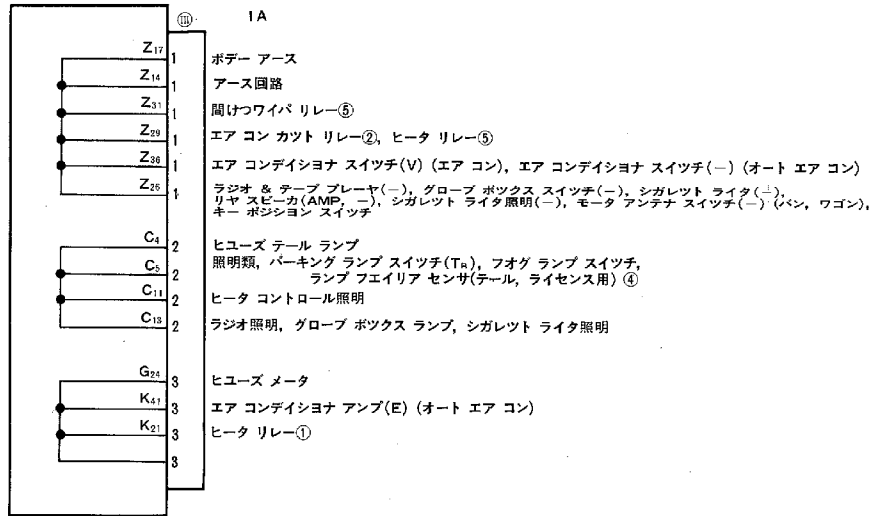 Ⅲ 1A
Z17 1 ボデー アース
Z14 1 アース回路
Z31 1 間けつワイパ リレー⑤
Z29 1 エア コン カツト リレー②, ヒータ リレー⑤
Z36 1 エア コンデイシヨナ スイツチ(V) (エア コン), エア コンデイシヨナ スイツチ(−) (オート エア コン)
Z26 1 ラジオ & テープ プレーヤ(−), グローブ ボツクス スイツチ(−), シガレツト ライタ(−),
リヤ スピーカ(AMP, −), シガレツト ライタ照明(−), モータ アンテナ スイツチ(−) (バン, ワゴン),
キー ポジシヨン スイツチ
C4 2 ヒユーズ テール ランプ
C5 2 照明類, パーキング ランプ スイツチ(TR), フオグ ランプ スイツチ,
ランプ フエイリア センサ(テール, ライセンス用) ④
C11 2 ヒータ コントロール照明
C13 2 ラジオ照明, グローブ ボツクス ランプ, シガレツト ライタ照明
G24 3 ヒユーズ メータ
K41 3 エア コンデイシヨナ アンプ(E) (オート エア コン)
K21 3 ヒータ リレー①
3